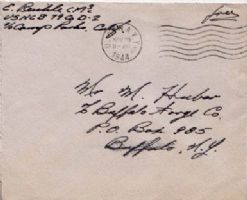 E. Buehle, CM2
USNCB 79 D-2
c/o Camp Parks, Calif
free
1944
Mr. M. Huber
c/o Buffalo Forge Co.
P.O. Box 985
Buffalo, N.Y.